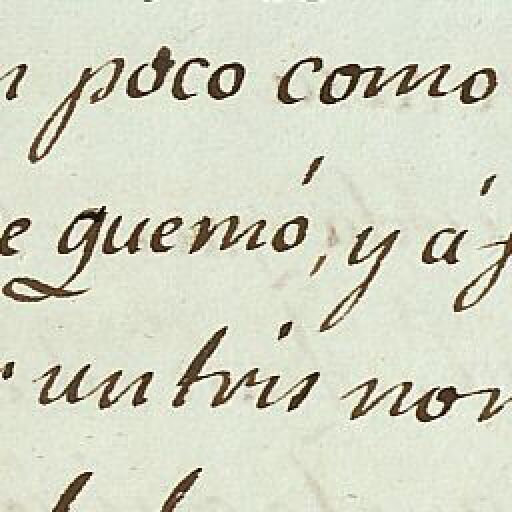 n poco como
e quemó, y á
r un tris non